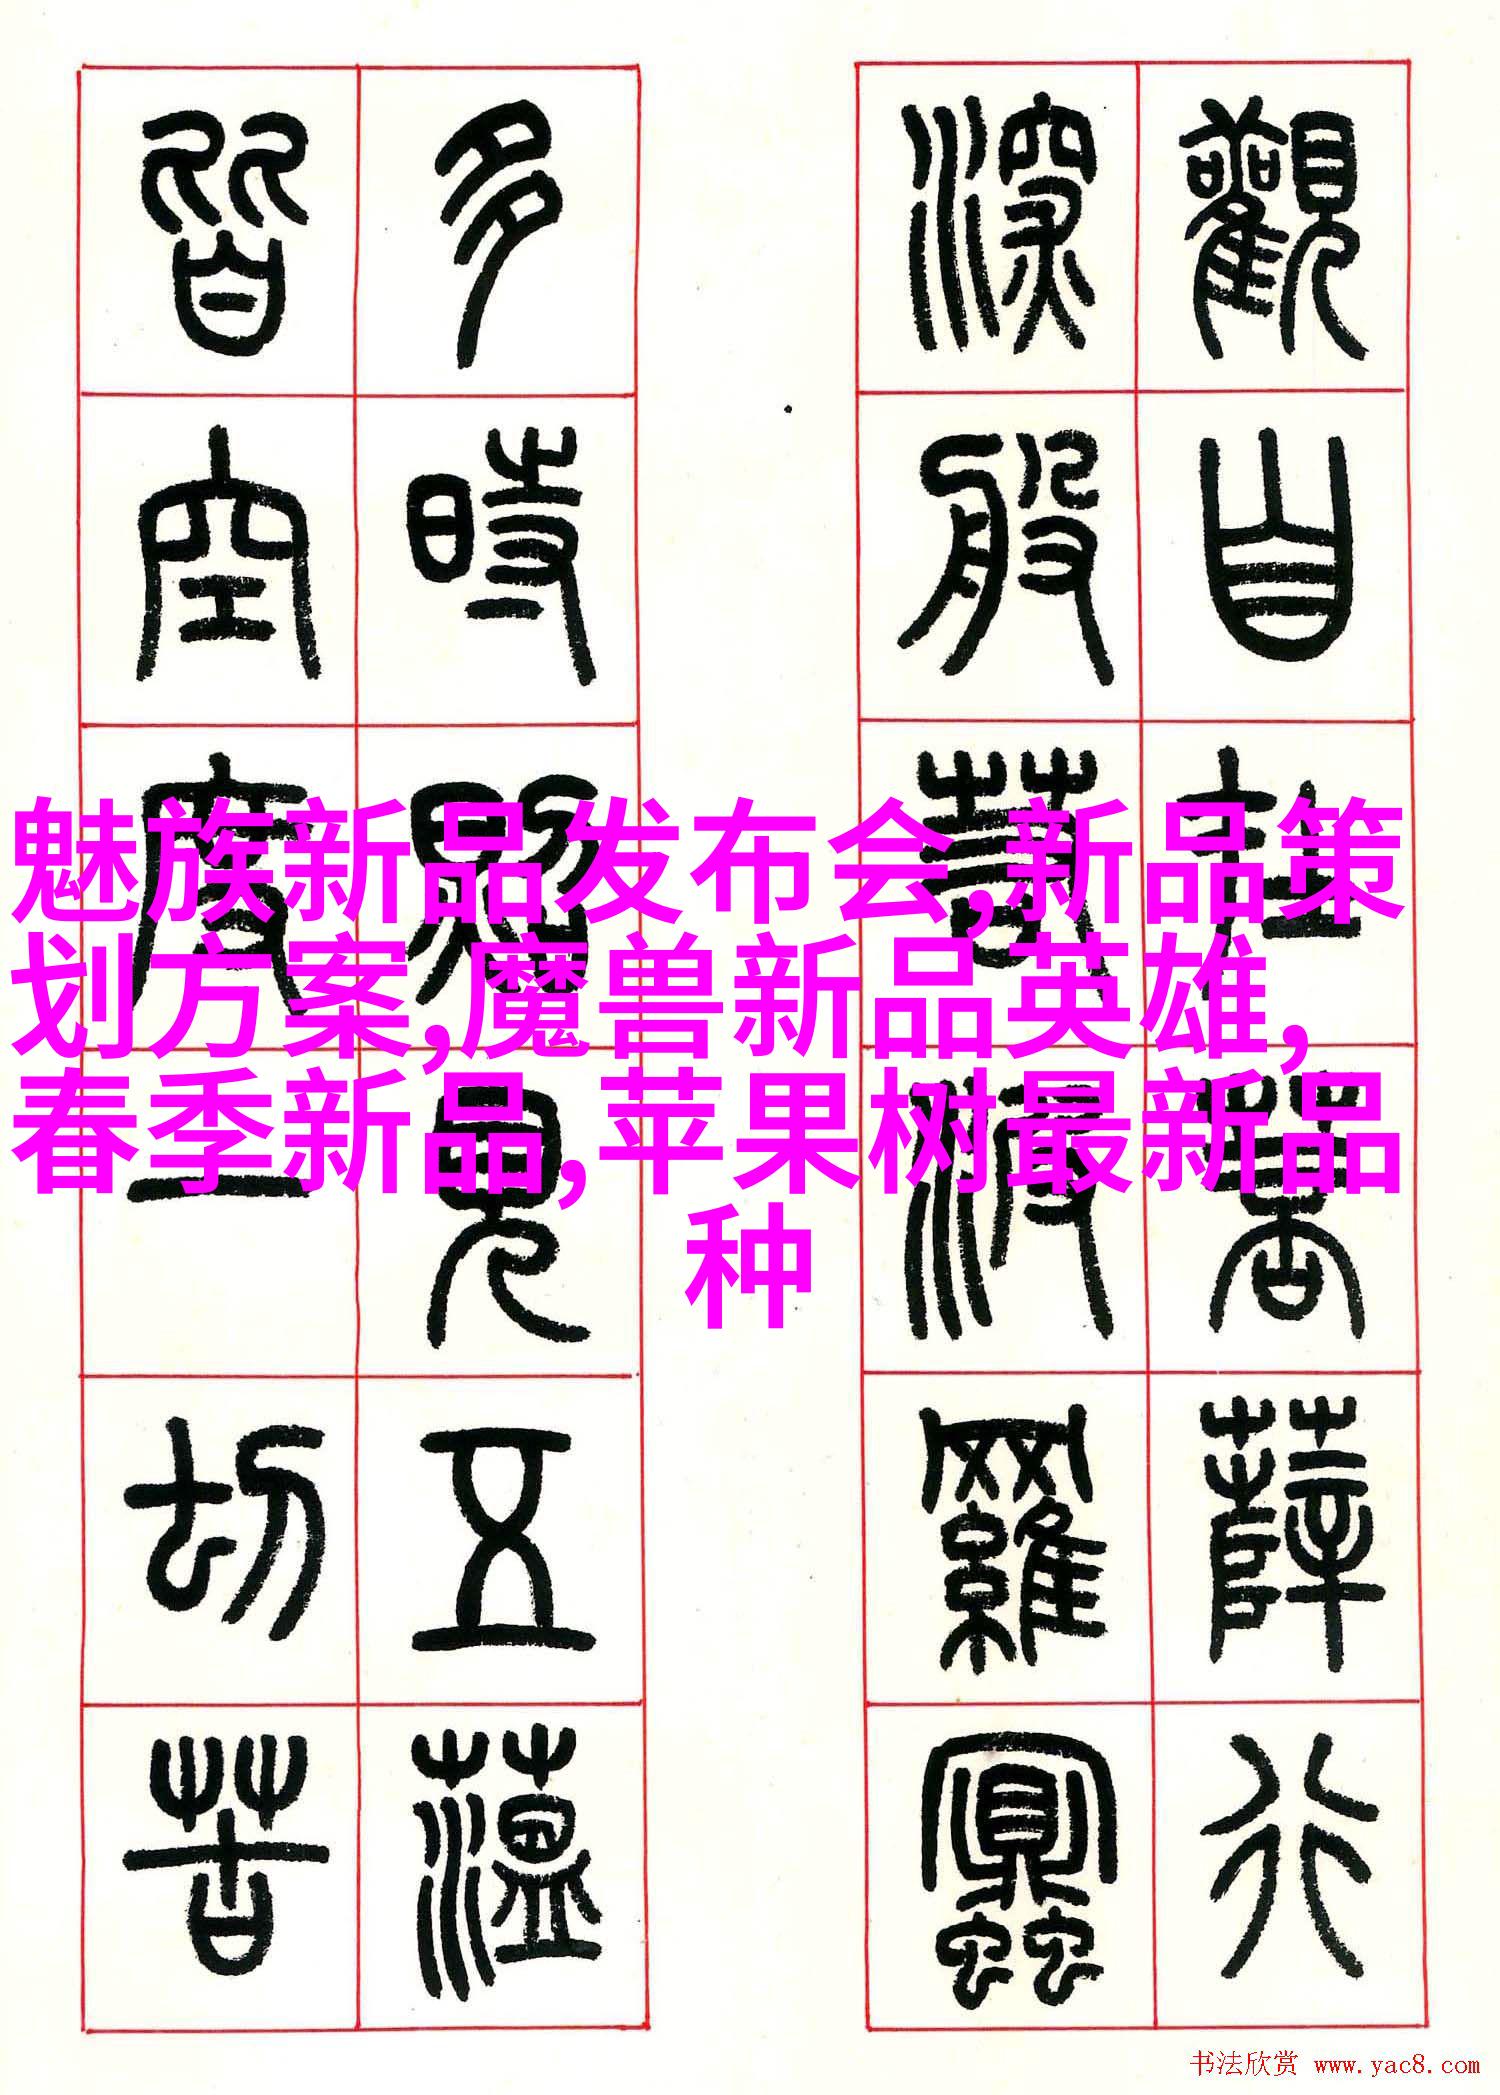 觀自在菩薩行
深般若波羅蜜
多時照見五蘊
皆空度一切苦
魅族新品发布会,新品策
划方案,魔兽新品英雄,
春季新品,苹果树最新品
种
书法欣赏 www.yac8.com